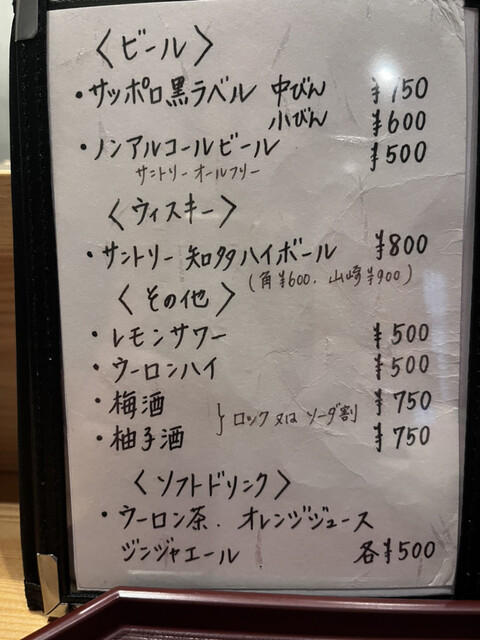 〈ビール〉
・サッポロ黒ラベル 中びん ¥750
小びん ¥600
・ノンアルコールビール ¥500
サントリー オールフリー
〈ウィスキー〉
・サントリー 知多ハイボール ¥800
(角¥600. 山崎¥900)
〈その他〉
・レモンサワー ¥500
・ウーロンハイ ¥500
・梅酒 ¥750
} ロック 又は ソーダ割
・柚子酒 ¥750
〈ソフトドリンク〉
・ウーロン茶. オレンジジュース
ジンジャエール 各¥500